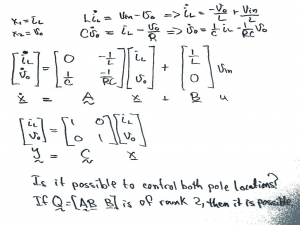 x₁ = i_L    L i̇_L = v_in - v_o => i̇_L = -v_o/L + v_in/L
x₂ = v_o    C v̇_o = i_L - v_o/R => v̇_o = 1/C i_L - 1/RC v_o
[i̇_L; v̇_o] = [0 -1/L; 1/C -1/RC] [i_L; v_o] + [1/L; 0] v_in
ẋ = A x + B u
[i_L; v_o] = [1 0; 0 1] [i_L; v_o]
y = C x
Is it possible to control both pole locations?
If Q = [AB B] is of rank 2, then it is possible